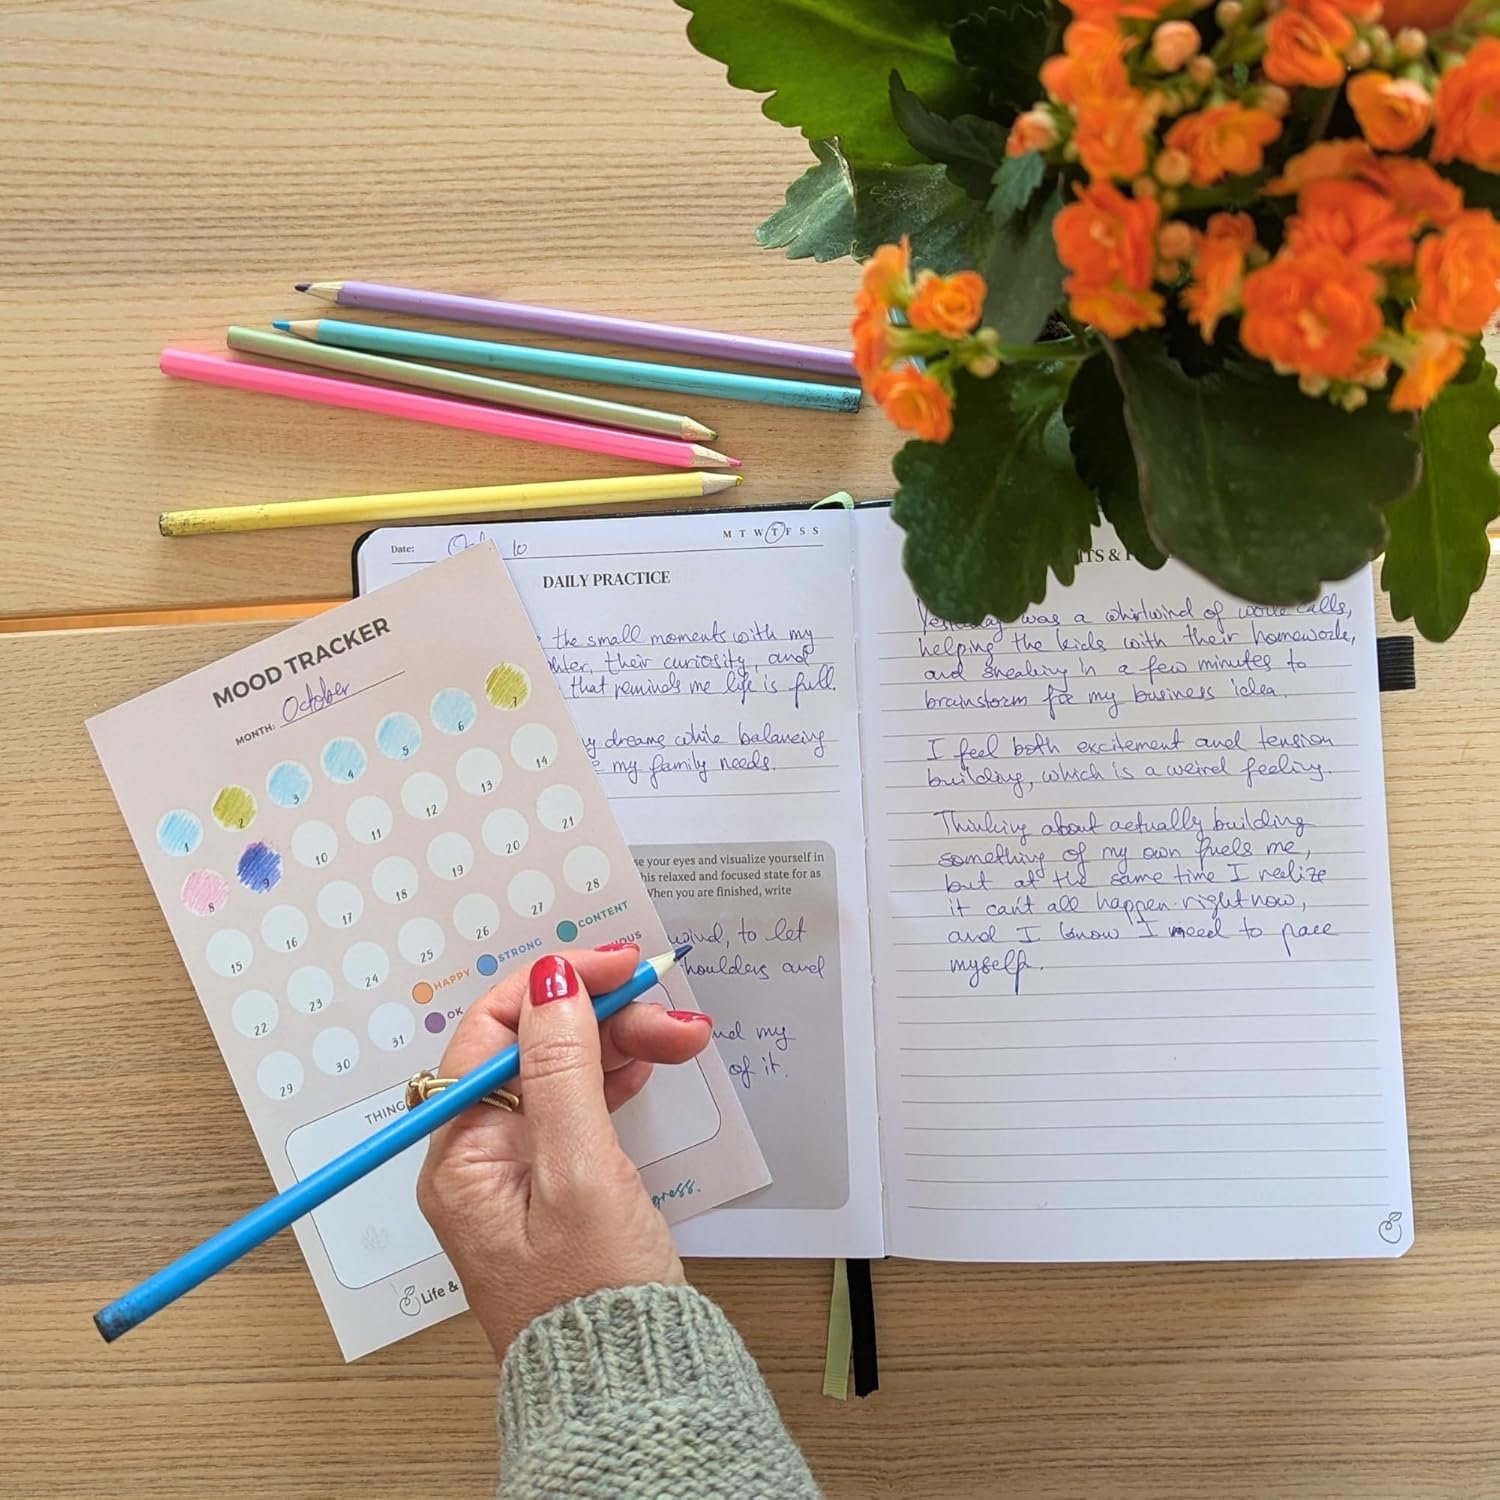 Date: Oct 10
M T W T F S S
DAILY PRACTICE
the small moments with my
their curiosity, and
that reminds me life is full.
dreams while balancing
my family needs.
se your eyes and visualize yourself in
his relaxed and focused state for as
When you are finished, write
wind, to let
shoulders and
and my
of it.
Yesterday was a whirlwind of work calls,
helping the kids with their homework,
and sneaking in a few minutes to
brainstorm for my business idea.
I feel both excitement and tension
building, which is a weird feeling.
Thinking about actually building
something of my own fuels me,
but at the same time I realize
it can't all happen right now,
and I know I need to pace
myself.
MOOD TRACKER
MONTH: October
1 2 3 4 5 6 7
8 9 10 11 12 13 14
15 16 17 18 19 20 21
22 23 24 25 26 27 28
29 30 31
HAPPY STRONG CONTENT
OK
THING
gress.
Life &